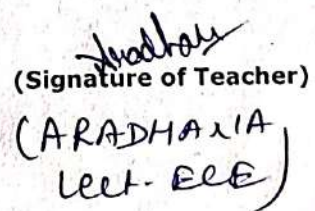 Aradhana
(Signature of Teacher)
(ARADHANA
Lect- ECE)